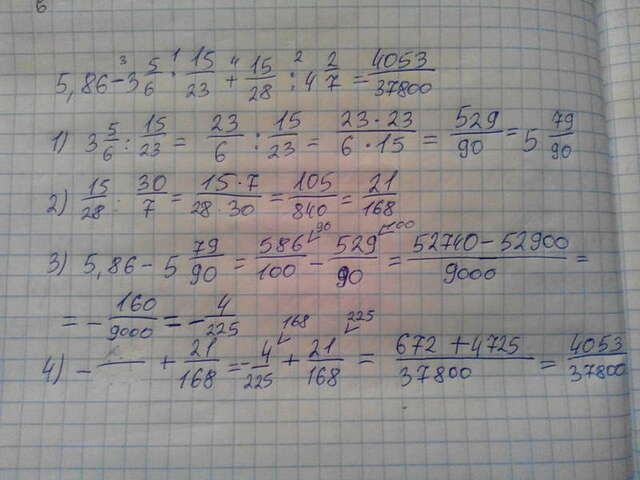 5,86 - 3 5/6 : 15/23 + 15/28 : 4 2/7 = 4053/37800
1) 3 5/6 : 15/23 = 23/6 : 15/23 = 23·23/6·15 = 529/90 = 5 79/90
2) 15/28 : 30/7 = 15·7/28·30 = 105/840 = 21/168
3) 5,86 - 5 79/90 = 586/100 - 529/90 = 52740 - 52900/9000 =
= - 160/9000 = - 4/225
4) - — + 21/168 = - 4/225 + 21/168 = 672 + 4725/37800 = 4053/37800